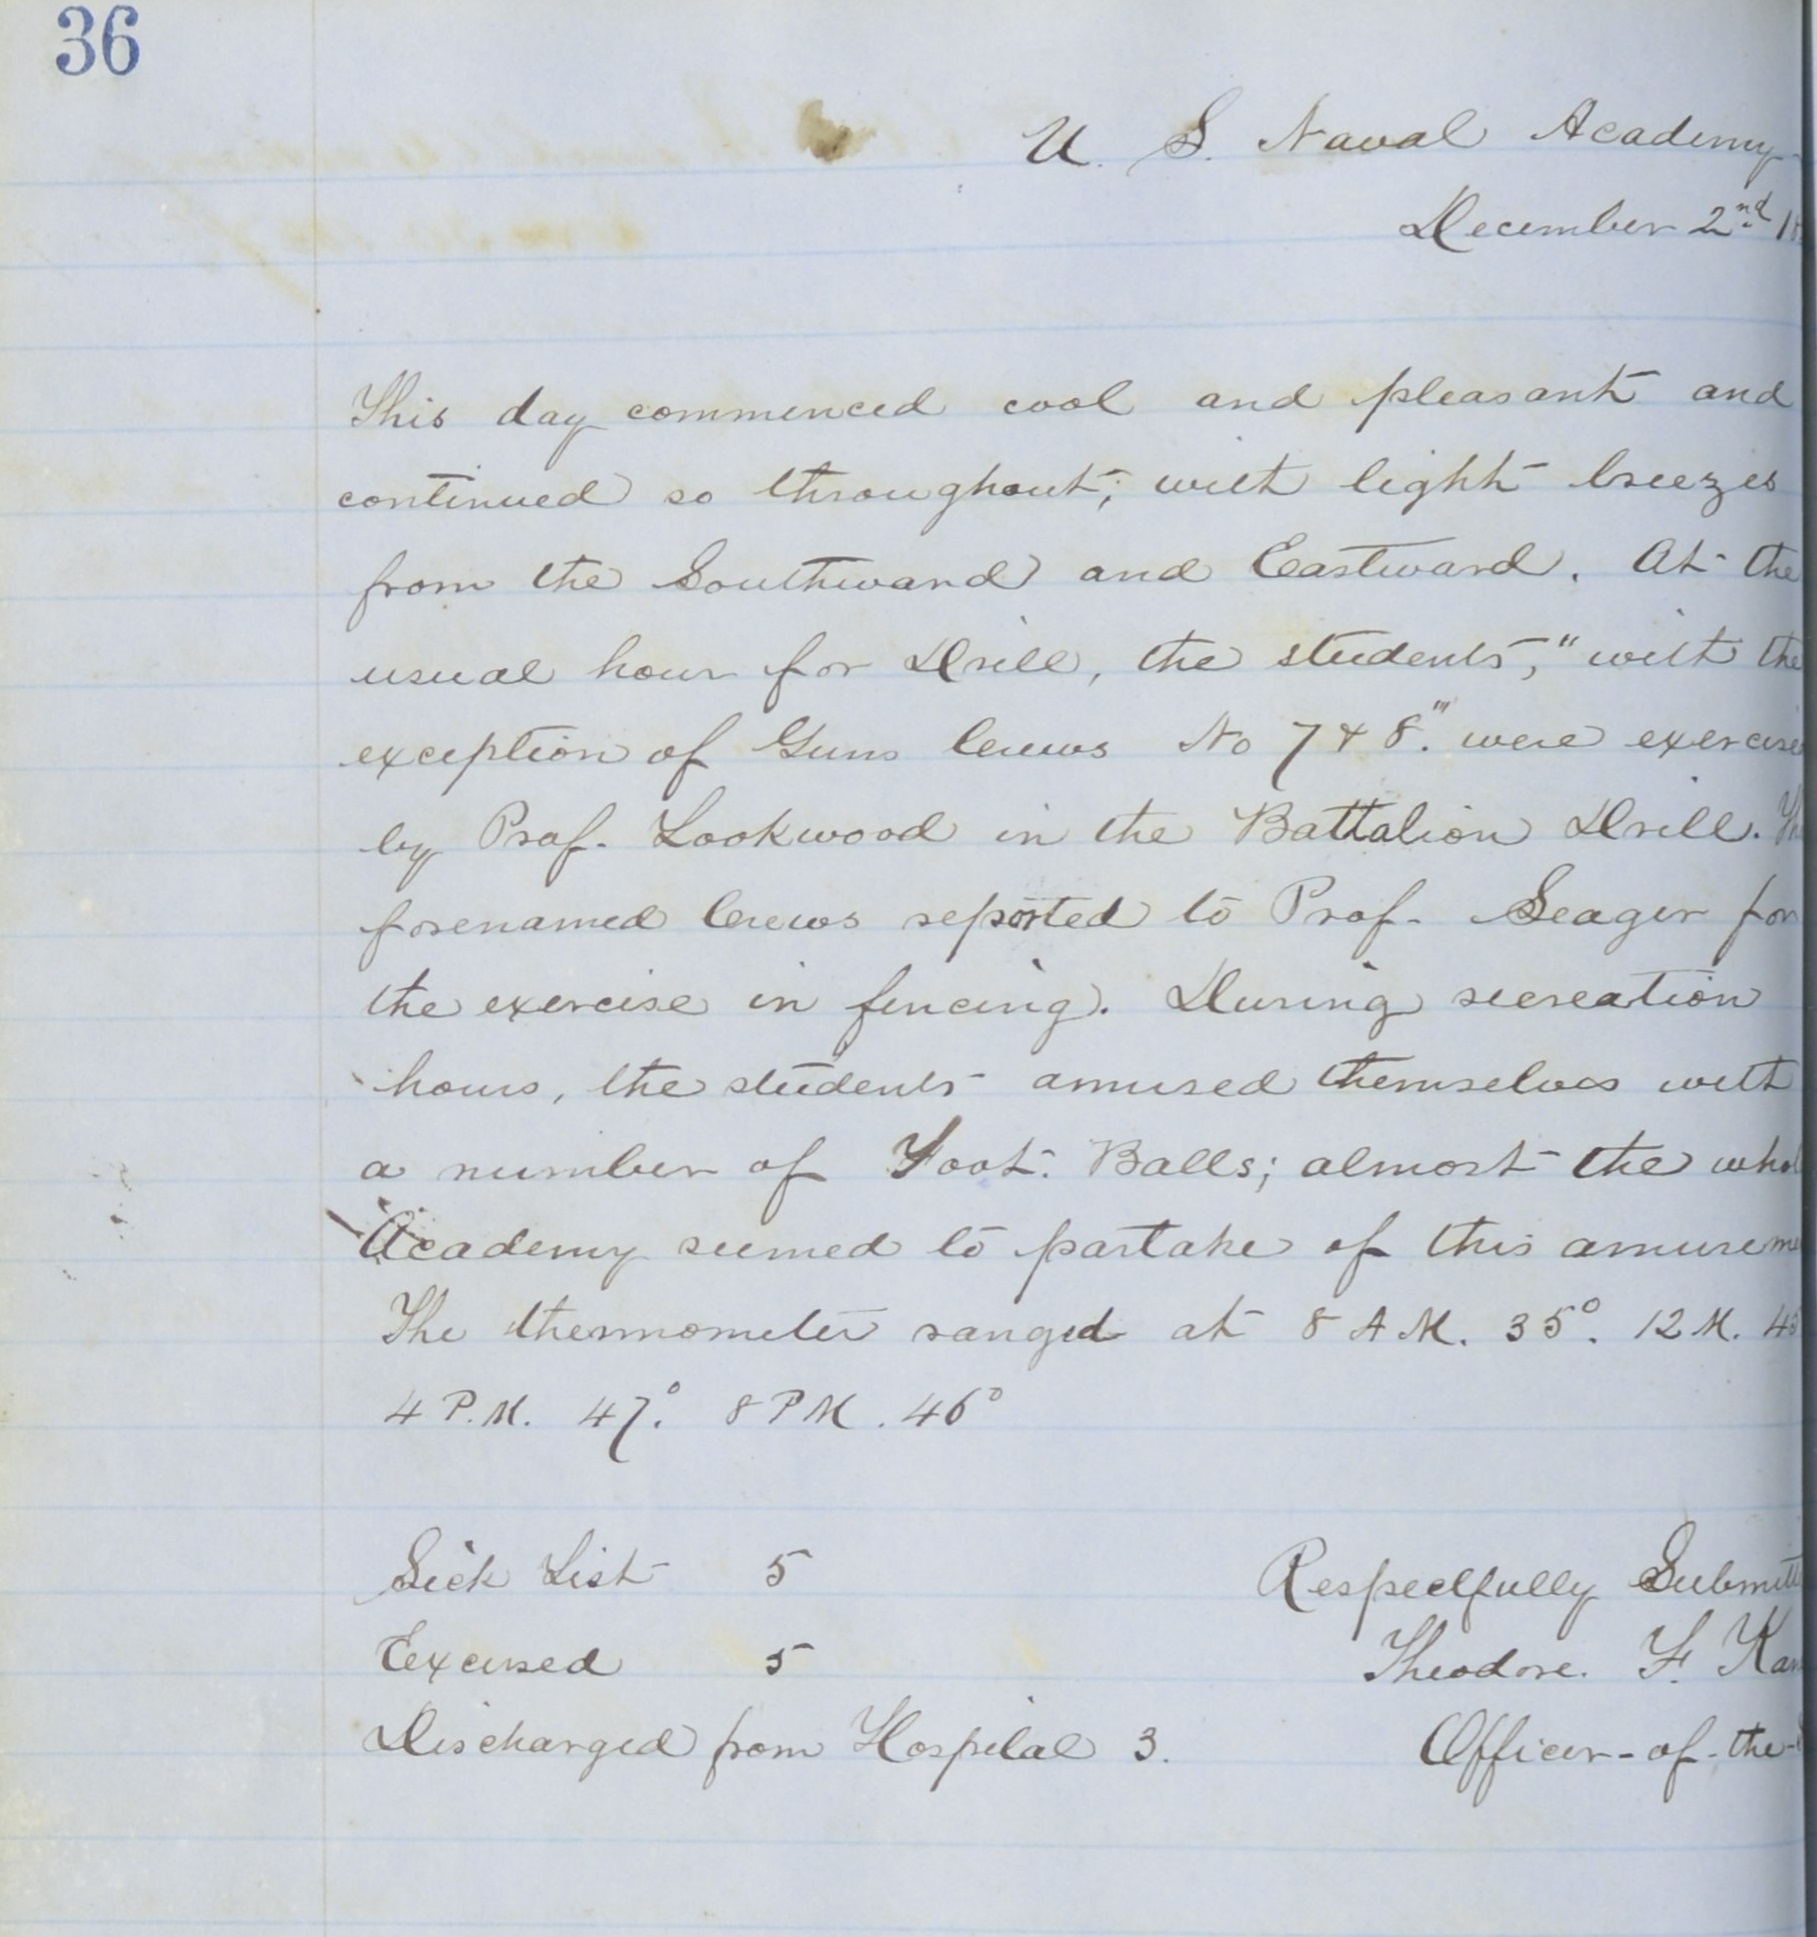 36
U. S. Naval Academy
December 2nd
This day commenced cool and pleasant and
continued so throughout; with light breezes
from the Southward and Eastward. At the
usual hour for Drill, the students, "with the
exception of Guns Crews No 7 & 8." were exercise
by Prof. Lookwood in the Battalion Drill.
forenamed Crews reported to Prof. Seager for
the exercise in fencing. During recreation
hours, the students amused themselves with
a number of Foot. Balls; almost the whol
Academy seemed to partake of this amuseme
The thermometer ranged at 8 A M. 35°. 12 M.
4 P.M. 47°. 8 P M. 46°
Sick List 5
Respectfully Submitt
Excused 5
Theodore. F. Kan
Discharged from Hospital 3.
Officer-of-the-